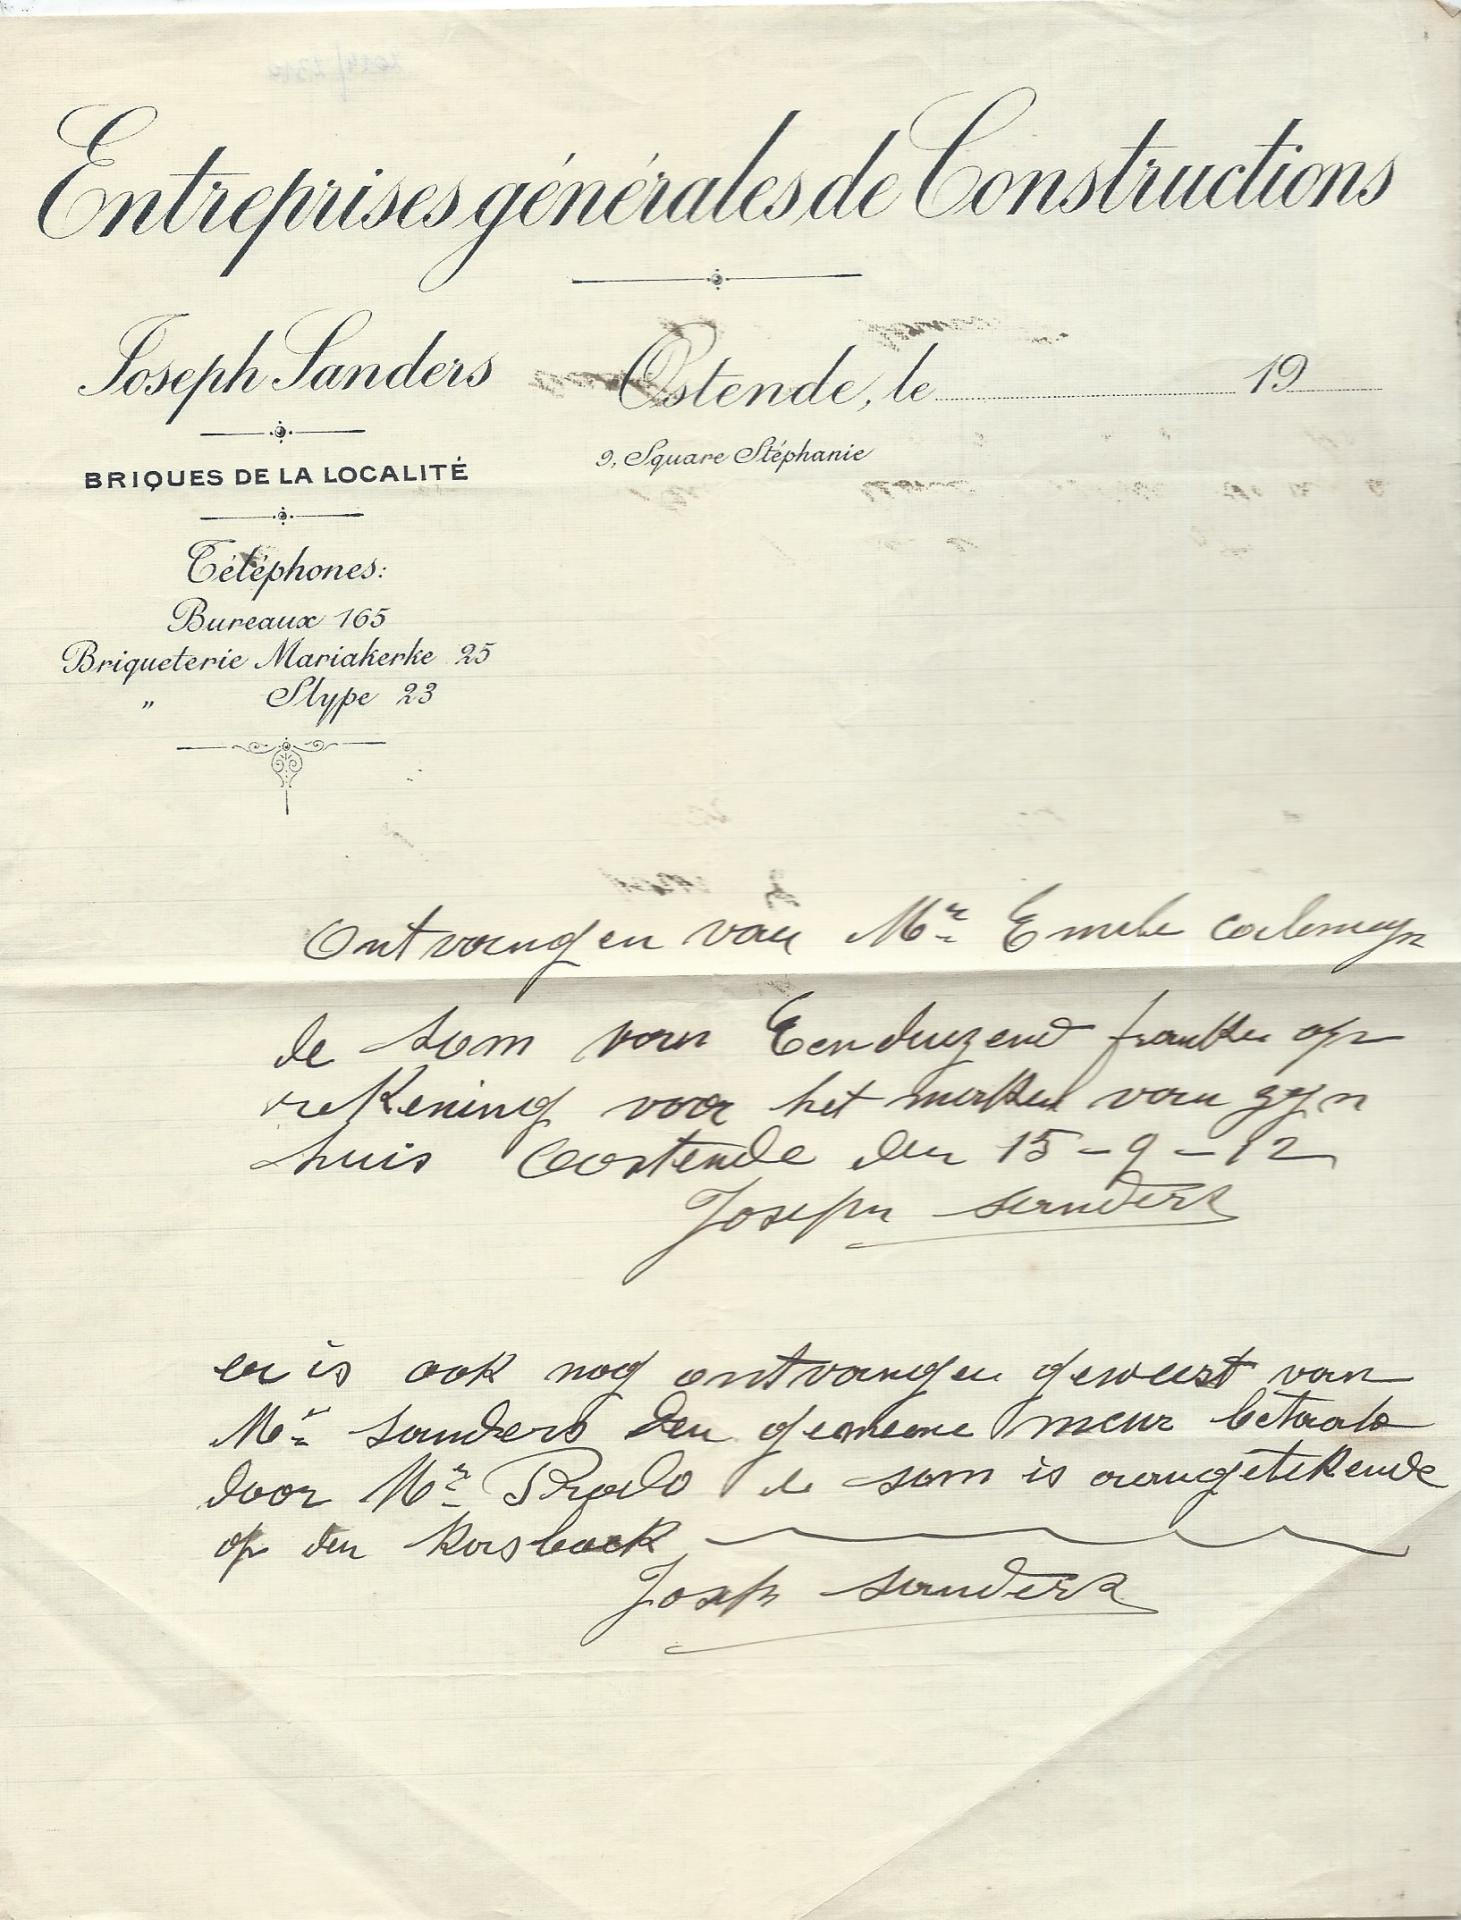 Entreprises générales de Constructions
Joseph Sanders
Ostende, le 19
BRIQUES DE LA LOCALITÉ
9, Square Stéphanie
Téléphones:
Bureaux 165
Briqueterie Mariakerke 25
„ Slype 23
Ontvangen van Mr Emile
de som van Eenduizend franken op
rekening voor het maken van zyn
huis Oostende den 15-9-12
Joseph Sanders
er is ook nog ontvangen geweest van
Mr Sanders den gemeene meur betaald
door Mr de som is aangetekende
op den
Joseph Sanders